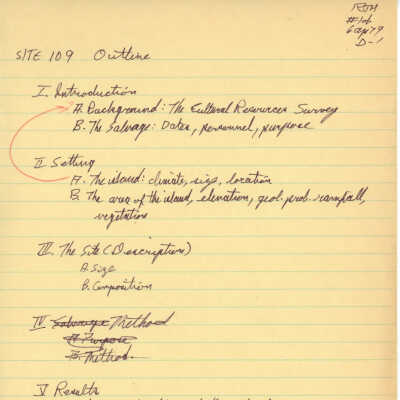 RDH
#106
6 Sep 79
D-1
SITE 109 Outline
I. Introduction
A. Background: The Cultural Resources Survey
B. The Salvage: Dates, personnel, purpose
II. Setting
A. The island: climate, size, location
B. The area of the island, elevation, geol. prob. rainfall,
vegetation
III. The Site (Description)
A. Size
B. Composition
IV Salvage Method
A. Purpose
B. Method.
V Results